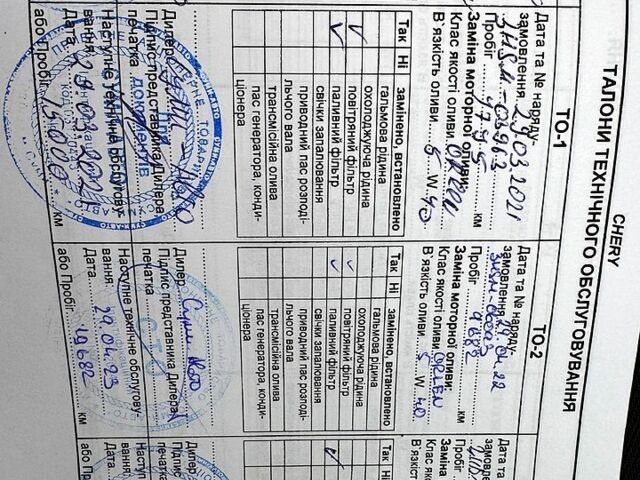 CHERY
ТАЛОНИ ТЕХНІЧНОГО ОБСЛУГОВУВАННЯ
ТО-1
Дата та № наряду-
замовлення 29.03.2021
Пробіг 4795 км
Заміна моторної оливи:
Клас якості оливи ORLEN
В´язкість оливи 5 W 40
Так Ні замінено, встановлено
гальмова рідина
охолоджуюча рідина
повітряний фільтр
паливний фільтр
свічки запалювання
приводний пас розподі-
льчого вала
трансмісійна олива
пас генератора, конди-
ціонера
Дилер Суми Авто
Підпис представника Дилера
печатка
Наступне технічне обслугову-
вання:
Дата
або Пробіг 15000 км
ТО-2
Дата та № наряду-
замовлення 29.04.22
Пробіг 9682 км
Заміна моторної оливи:
Клас якості оливи ORLEN
В´язкість оливи 5 W 40
Так Ні замінено, встановлено
гальмова рідина
охолоджуюча рідина
повітряний фільтр
паливний фільтр
свічки запалювання
приводний пас розподі-
льчого вала
трансмісійна олива
пас генератора, конди-
ціонера
Дилер Суми Авто
Підпис представника Дилера
печатка
Наступне технічне обслугову-
вання:
Дата 29.04.23
або Пробіг 19682 км
Дата та №
замовлен
Пробіг
Заміна м
Клас які
В´язкіст
Так Ні
Дилер
Підпис
печатка
Наступ
вання:
Дата
або Пр